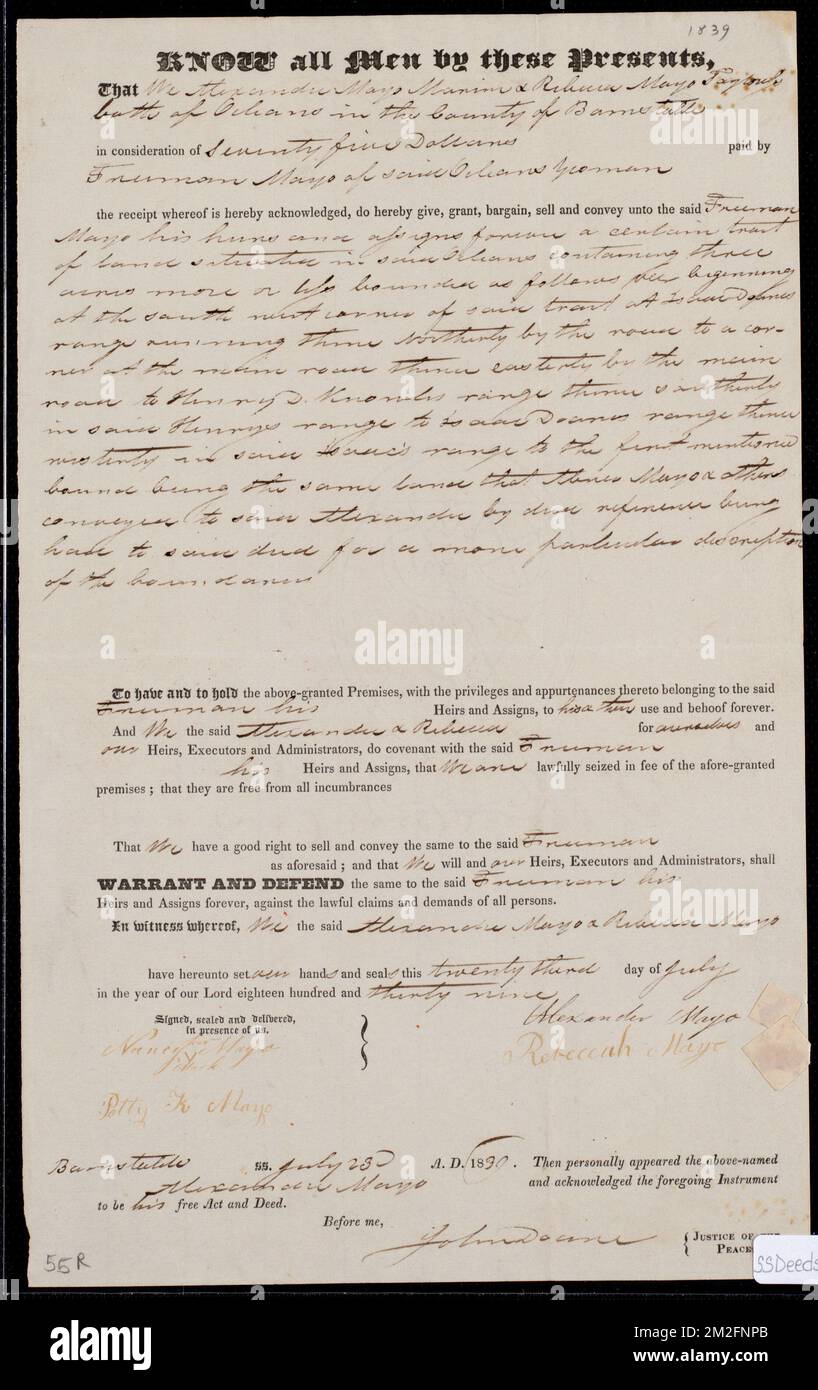 1839
KNOW all Men by these Presents,
That We Alexander Mayo Marine & Rebecca Mayo
both of Orleans in the County of Barnstable
in consideration of Seventy five Dollars paid by
Freeman Mayo of said Orleans Yeoman
the receipt whereof is hereby acknowledged, do hereby give, grant, bargain, sell and convey unto the said Freeman
Mayo his heirs and assigns forever a certain tract
of land situated in said Orleans containing three
acres more or less bounded as follows viz beginning
at the south west corner of said tract at Isaac Doanes
range running thence Northerly by the road to a cor-
ner at the main road thence easterly by the main
road to Henry D. Knowles range thence southerly
in said Henrys range to Isaac Doanes range thence
westerly in said Isaac's range to the first mentioned
bound being the same land that Mayo & others
conveyed to said Alexander by deed reference being
had to said deed for a more particular discription
of the boundaries
To have and to hold the above-granted Premises, with the privileges and appurtenances thereto belonging to the said
Freeman his Heirs and Assigns, to his & their use and behoof forever.
And We the said Alexander & Rebecca for ourselves and
our Heirs, Executors and Administrators, do covenant with the said Freeman
his Heirs and Assigns, that We are lawfully seized in fee of the afore-granted
premises; that they are free from all incumbrances
That We have a good right to sell and convey the same to the said Freeman
as aforesaid; and that We will and our Heirs, Executors and Administrators, shall
WARRANT AND DEFEND the same to the said Freeman his
Heirs and Assigns forever, against the lawful claims and demands of all persons.
In witness whereof, We the said Alexander Mayo & Rebecca Mayo
have hereunto set our hands and seals this twenty third day of July
in the year of our Lord eighteen hundred and thirty nine
Signed, sealed and delivered,
in presence of us.
Alexander Mayo
Nancy Mayo
Rebeccah Mayo
Polly K Mayo
Barnstable ss. July 23d A. D. 1839. Then personally appeared the above-named
Alexander Mayo and acknowledged the foregoing Instrument
to be his free Act and Deed.
Before me,
John Doane { JUSTICE OF THE
PEACE
55R
SSDeeds
alamy
Image ID: 2M2FNPB
www.alamy.com